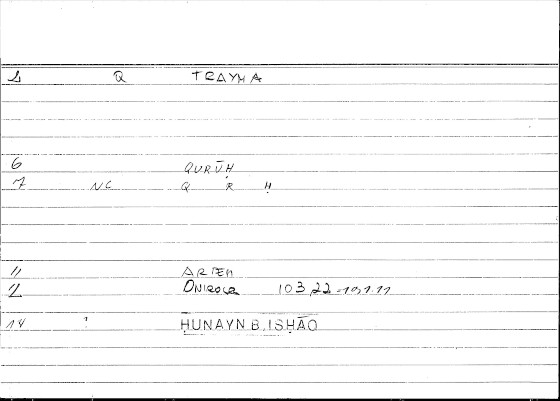 1 Q TRAYMA
6 QURŪḤ
7 NC Q R Ḥ
11 ARTEM
12 ONIROCR 103,22-191.11
14 ? ḤUNAYN B. ISḤĀQ